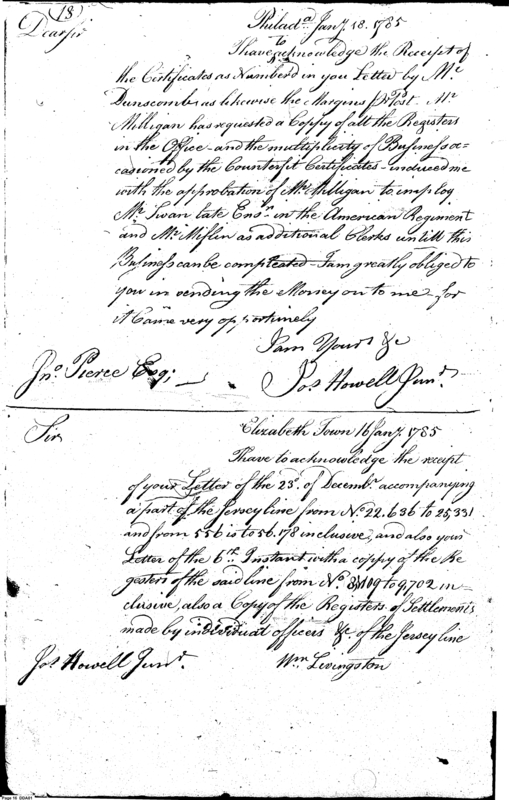 (18)
Philada. Jany. 18. 1785
Dear sir
I have to acknowledge the Receipt of
the Certificates as Numberd in you Letter by Mr
Dunscomb as likewise the Margins Pr Post. Mr
Milligan has requested a Coppy of all the Registers
in the Office and the multiplicity of Business oc=
casioned by the Counterfit Certificates induced me
with the approbation of Mr Milligan to employ
Mr Swan late Ensn in the American Regiment
and Mr Miflin as additional Clerks untill this
Business can be compleated I am greatly obliged to
you in sending the Money on to me for
it Came very opportunely
I am Yours &c
Jno. Pierce Esq; Jos Howell Junr.
Elizabeth Town 16 Jany. 1785
Sir
I have to acknowledge the receipt
of your Letter of the 23d. of Decembr. accompanying
a part of the Jersey line from No 22.636 to 25,331
and from 55 to 56.178 inclusive, and also your
Letter of the 6th. Instant with a copy of the Re
gesters of the said line from No. to 9,702 in=
clusive, also a Copy of the Registers of Settlements
made by individual officers &c of the Jersey line
Jos Howell Junr. Wm Livingston